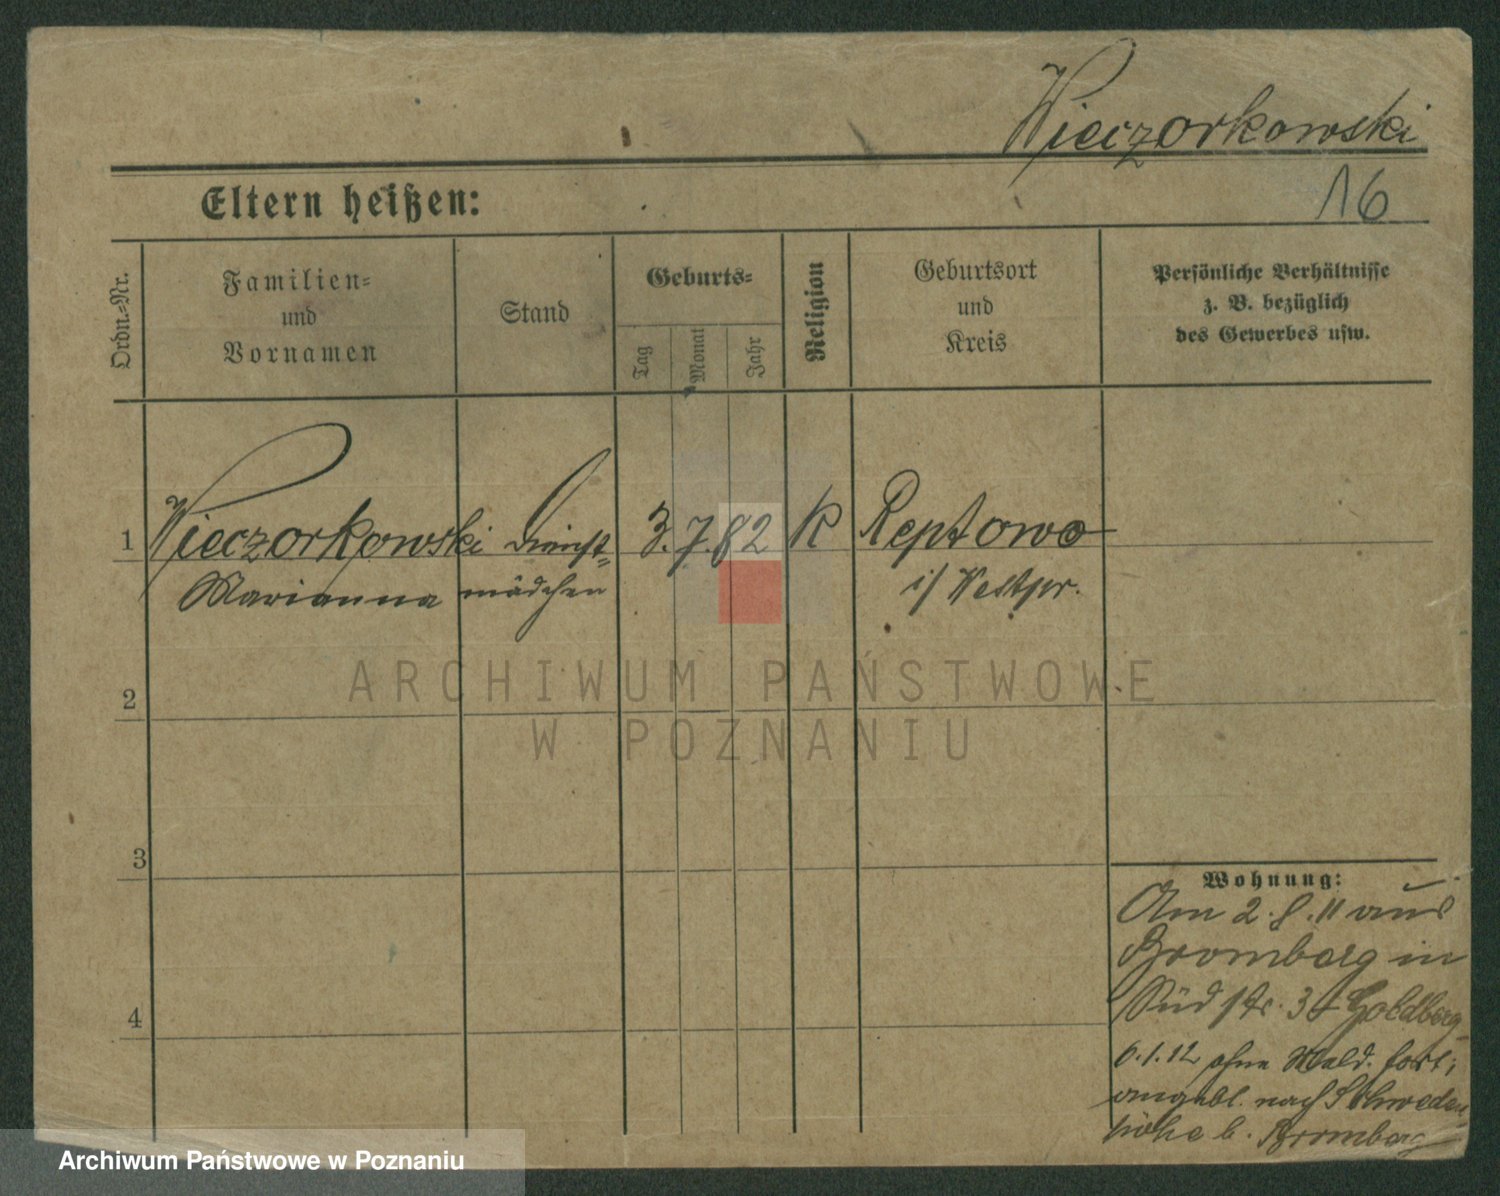 Wieczorkowski
16
Eltern heißen:
Ordn.-Nr.
Familien-
und
Vornamen
Stand
Geburts-
Tag
Monat
Jahr
Religion
Geburtsort
und
Kreis
Persönliche Verhältnisse
z. B. bezüglich
des Gewerbes usw.
1
Wieczorkowski
Marianna
Dienst-
mädchen
3. 7. 82
K
Reptowo
i/ Westpr.
ARCHIWUM PAŃSTWOWE
W POZNANIU
2
3
4
Wohnung:
Am 2.8.11 aus
Bromberg in
Südstr. 3 b Goldberg
6.1.12 ohne Meld. fort,
angebl. nach Schweden
höhe b. Bromberg
Archiwum Państwowe w Poznaniu